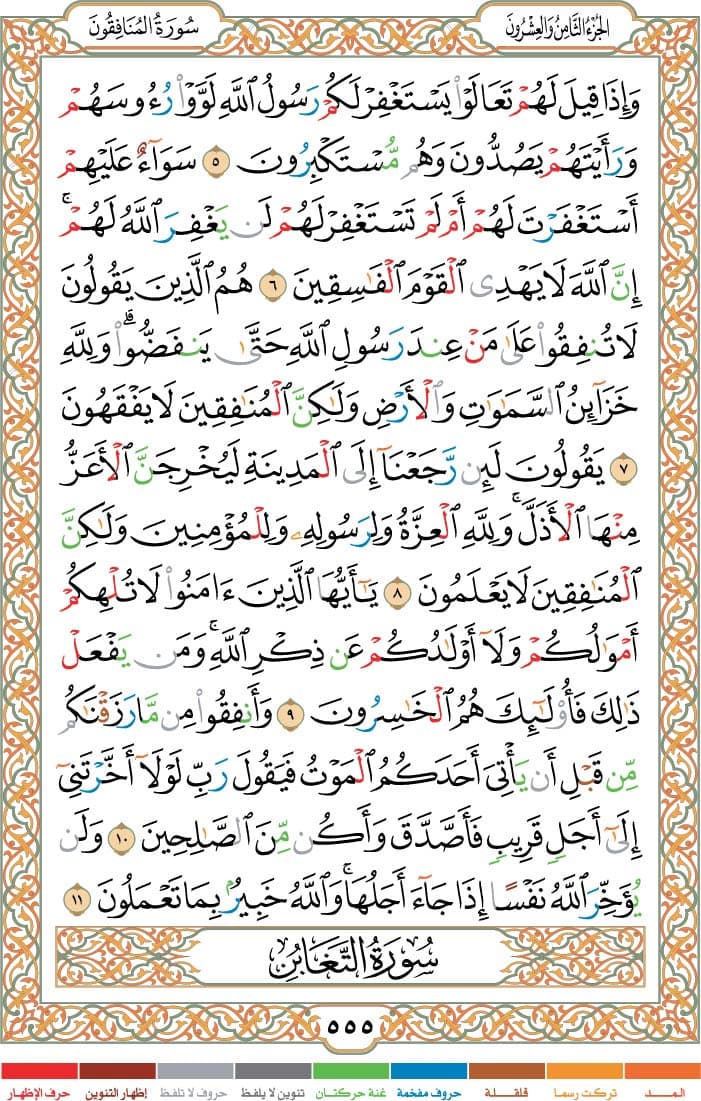 الجُزْءُ الثَّامِنُ وَالعِشْرُونَ
سُورَةُ المُنَافِقُونَ
وَإِذَا قِيلَ لَهُمْ تَعَالَوْا۟ يَسْتَغْفِرْ لَكُمْ رَسُولُ ٱللَّهِ لَوَّوْا۟ رُءُوسَهُمْ
وَرَأَيْتَهُمْ يَصُدُّونَ وَهُم مُّسْتَكْبِرُونَ ٥ سَوَآءٌ عَلَيْهِمْ
أَسْتَغْفَرْتَ لَهُمْ أَمْ لَمْ تَسْتَغْفِرْ لَهُمْ لَن يَغْفِرَ ٱللَّهُ لَهُمْ ۚ
إِنَّ ٱللَّهَ لَا يَهْدِى ٱلْقَوْمَ ٱلْفَٰسِقِينَ ٦ هُمُ ٱلَّذِينَ يَقُولُونَ
لَا تُنفِقُوا۟ عَلَىٰ مَنْ عِندَ رَسُولِ ٱللَّهِ حَتَّىٰ يَنفَضُّوا۟ ۗ وَلِلَّهِ
خَزَآئِنُ ٱلسَّمَٰوَٰتِ وَٱلْأَرْضِ وَلَٰكِنَّ ٱلْمُنَٰفِقِينَ لَا يَفْقَهُونَ
٧ يَقُولُونَ لَئِن رَّجَعْنَآ إِلَى ٱلْمَدِينَةِ لَيُخْرِجَنَّ ٱلْأَعَزُّ
مِنْهَا ٱلْأَذَلَّ ۚ وَلِلَّهِ ٱلْعِزَّةُ وَلِرَسُولِهِۦ وَلِلْمُؤْمِنِينَ وَلَٰكِنَّ
ٱلْمُنَٰفِقِينَ لَا يَعْلَمُونَ ٨ يَٰٓأَيُّهَا ٱلَّذِينَ ءَامَنُوا۟ لَا تُلْهِكُمْ
أَمْوَٰلُكُمْ وَلَآ أَوْلَٰدُكُمْ عَن ذِكْرِ ٱللَّهِ ۚ وَمَن يَفْعَلْ
ذَٰلِكَ فَأُو۟لَٰٓئِكَ هُمُ ٱلْخَٰسِرُونَ ٩ وَأَنفِقُوا۟ مِن مَّا رَزَقْنَٰكُم
مِّن قَبْلِ أَن يَأْتِىَ أَحَدَكُمُ ٱلْمَوْتُ فَيَقُولَ رَبِّ لَوْلَآ أَخَّرْتَنِىٓ
إِلَىٰٓ أَجَلٍ قَرِيبٍ فَأَصَّدَّقَ وَأَكُن مِّنَ ٱلصَّٰلِحِينَ ١٠ وَلَن
يُؤَخِّرَ ٱللَّهُ نَفْسًا إِذَا جَآءَ أَجَلُهَا ۚ وَٱللَّهُ خَبِيرٌۢ بِمَا تَعْمَلُونَ ١١
سُورَةُ التَّغَابُنِ
٥٥٥
المــد تركت رسما قلقلة حروف مفخمة غنة حركتان تنوين لا يلفظ حروف لا تلفظ إظهار التنوين حرف الإظهار